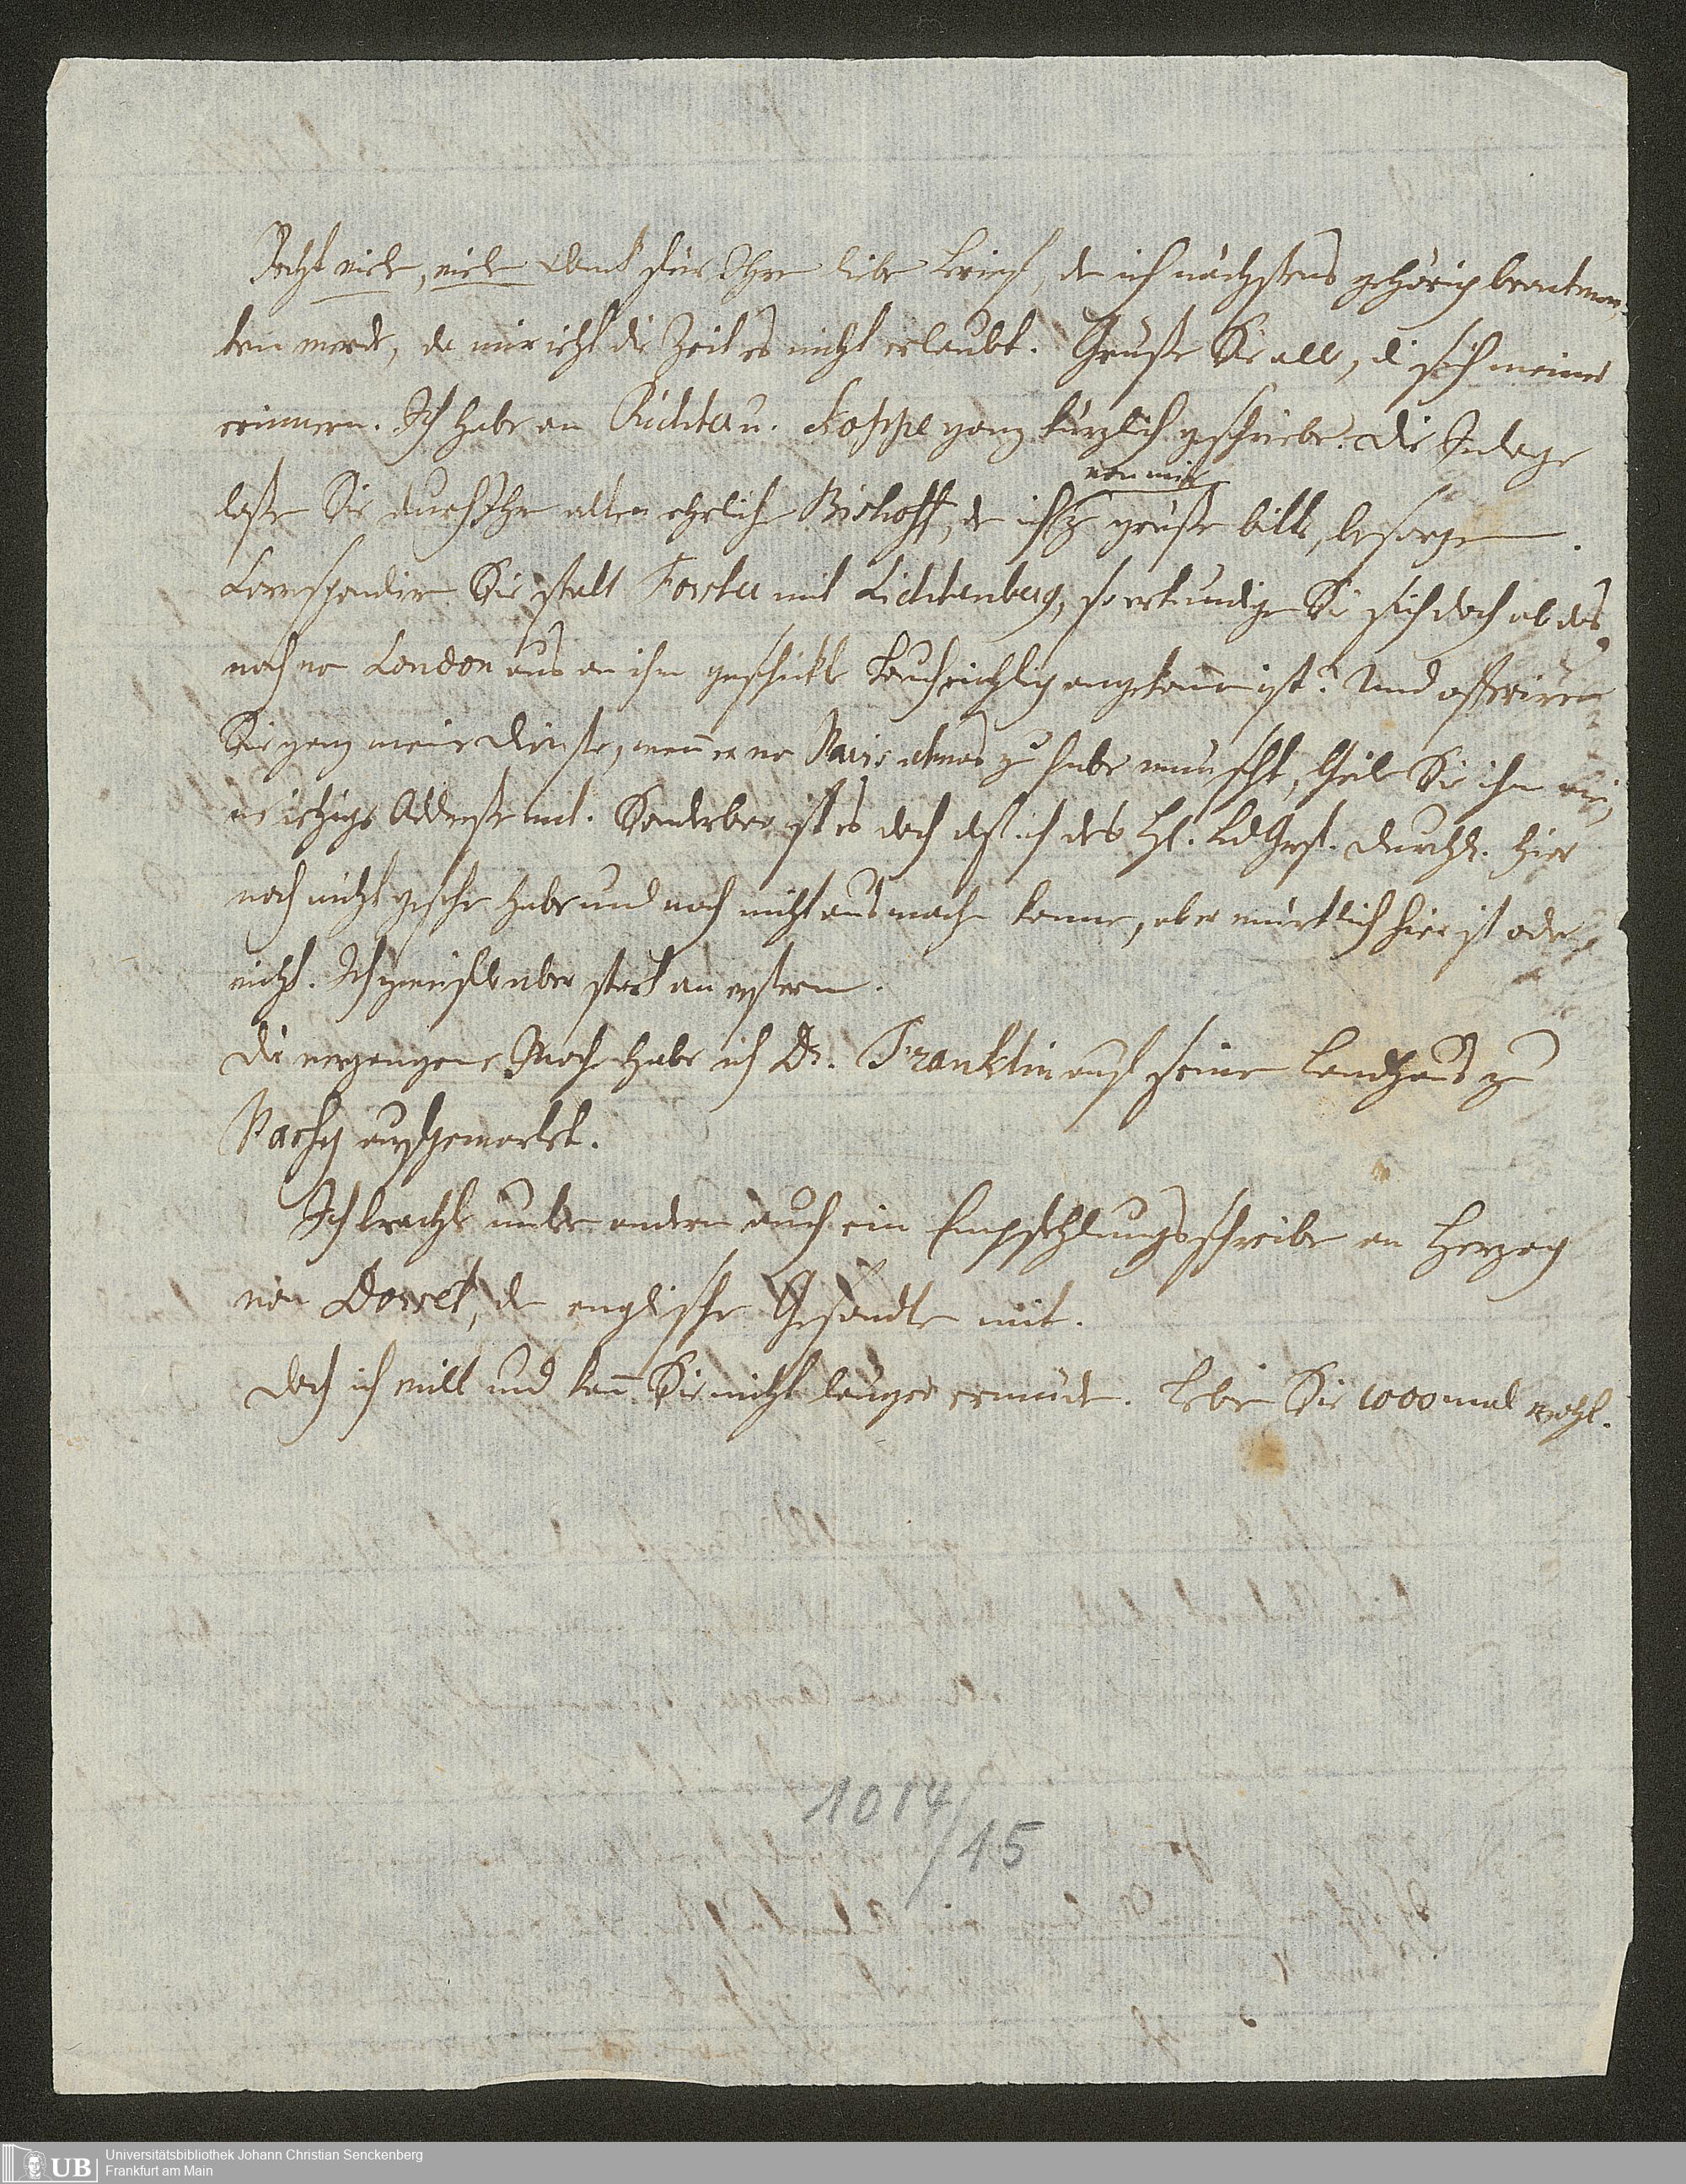 Recht viele, viele Dank für Ihren liebe Brief, den ich nächstens gehörig beantwor-
ten werde, da mir jetzt die Zeit es nicht erlaubt. Grüße Sie alle, di sich meiner
erinnern. Ich habe an Richter u. Koppe ganz kürzlich geschriebe. Die Inlage
laße Sie durch Ihre alten ehrliche Bischoff, de ich zu grüße bitte, besorgen.
von mir
Correspondire Sie statt Forster mit Lichtenberg, so erkundige Sie sich doch ob das
noch von London aus an ihn geschickte Buch richtig angekomm ist? Und offerire
Sie ganz meine Dienste, wenn er von Paris etwas zu habe wünscht, theile Sie ihm
jetzige Addresse mit. Sonderbar ist es doch daß ich des H. LdGrf. Durchl. hier
noch nicht gesehe habe und noch nicht ausmache konnte, ob er würklich hier ist oder
nicht. Ich zweifle aber stark an erstern.
Die vergangene Woche habe ich Dr. Franklin auf seinem Landhaus zu
Passy aufgewartet.
Ich brachte unter andern auch ein Empfehlungsschreibe an Herzog
von Dorset, de englische Gesandte mit.
Doch ich will und kann Sie nicht länger ermüde. Lebe Sie 1000 mal wohl.
1014/15
UB
Universitätsbibliothek Johann Christian Senckenberg
Frankfurt am Main